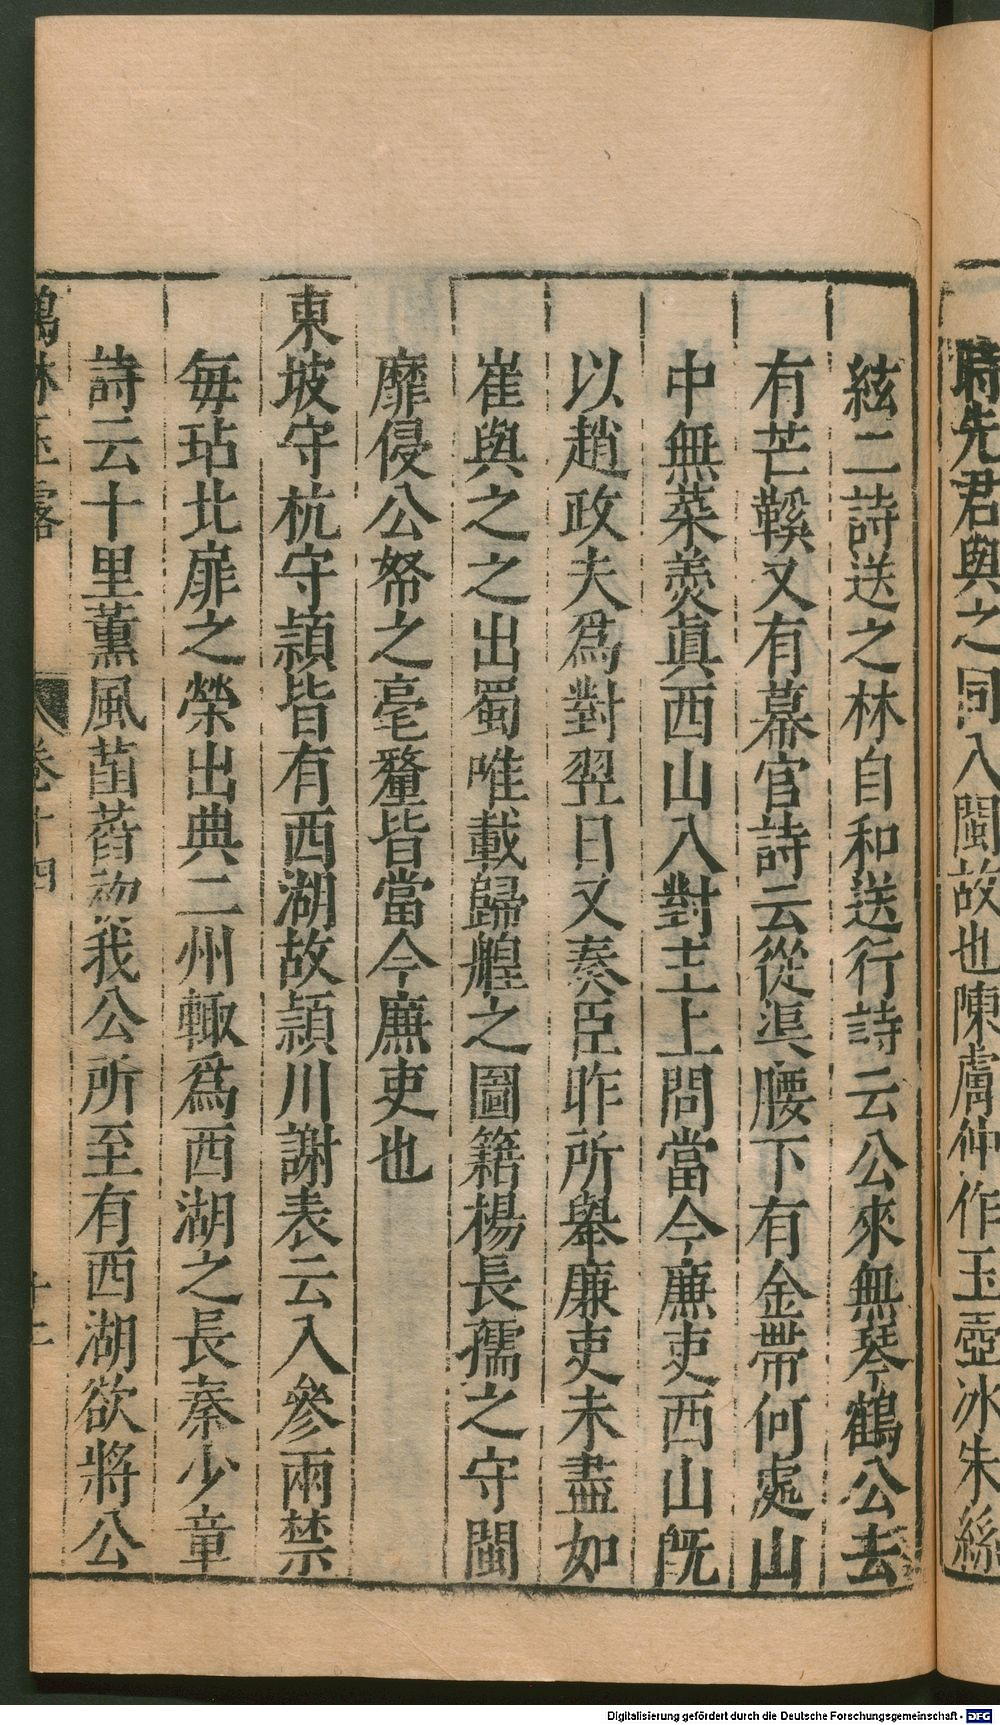 時先君與之同入閩故也陳膚仲作玉壺冰朱絲
絃二詩送之林自和送行詩云公來無琴鶴公去
有芒鞵又有幕官詩云從渠腰下有金帶何處山
中無菜羹眞西山入對主上問當今廉吏西山既
以趙政夫爲對翌日又奏臣昨所舉廉吏未盡如
崔與之之出蜀唯載歸艎之圖籍楊長孺之守閩
靡侵公帑之毫釐皆當今廉吏也
東坡守杭守頴皆有西湖故頴川謝表云入參兩禁
每玷北扉之榮出典二州輙爲西湖之長秦少章
詩云十里薫風菡萏初我公所至有西湖欲將公
鶴林玉露 卷十四 十二
Digitalisierung gefördert durch die Deutsche Forschungsgemeinschaft - DFG